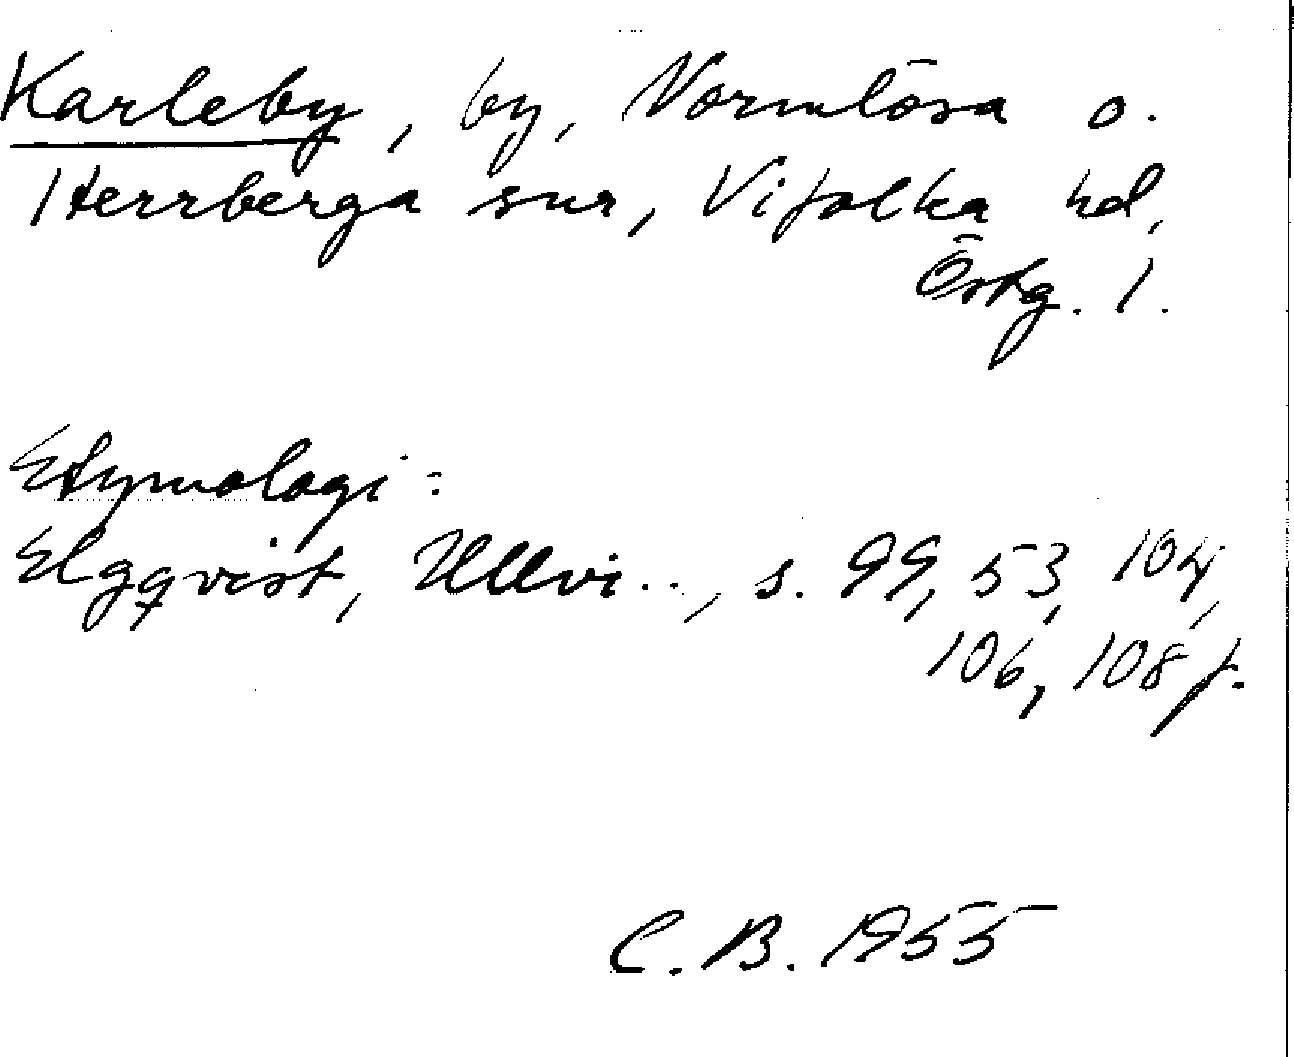 Karleby, by, Normlösa o.
Herrberga snr, Vifolka hd,
Östg. l.
Etymologi:
Elgqvist, Ullvi.., s. 99, 53, 104,
106, 108 f.
C. B. 1955